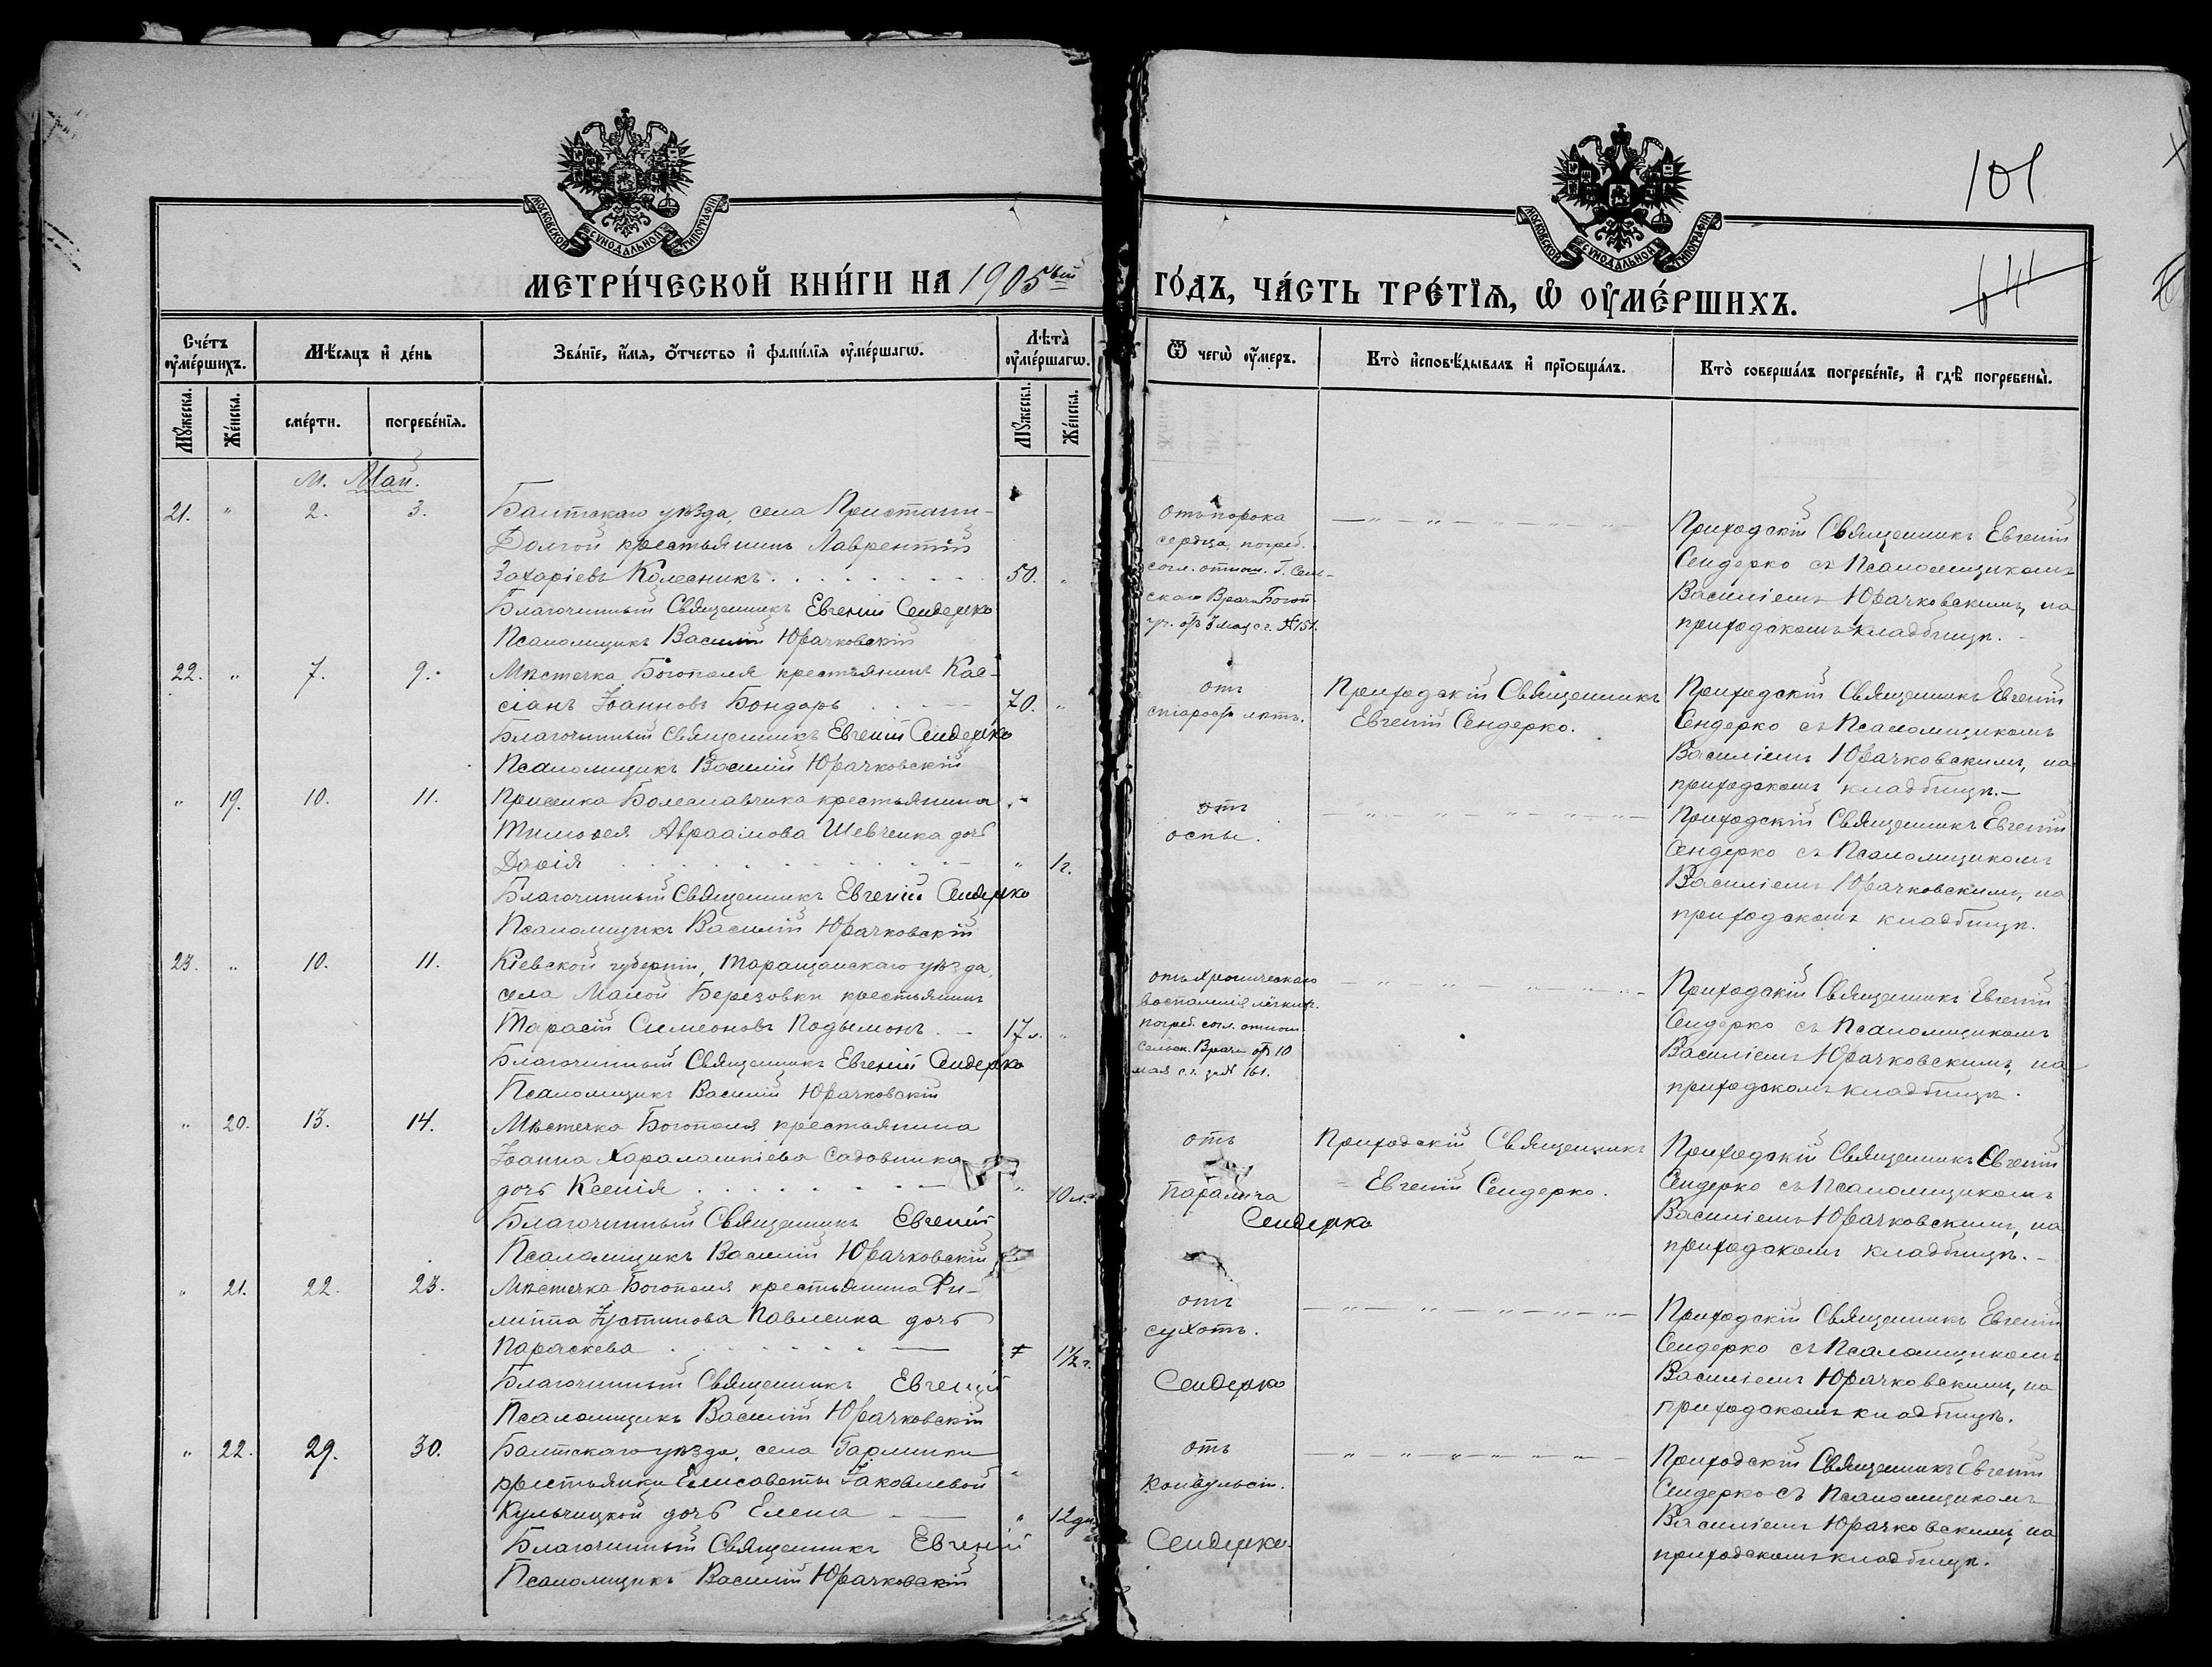 101
МОСКОВСКОЙ СУНОДАЛЬНОЙ ТИПОГРАФІИ
МОСКОВСКОЙ СУНОДАЛЬНОЙ ТИПОГРАФІИ
МЕТРИ́ЧЕСКОЙ КНИ́ГИ НА 1905ый ГО́ДЪ, ЧА́СТЬ ТРЕ́ТЇѦ, Ѡ҆ ОУ҆МЕ́РШИХЪ.
Сче́тъ оу҆ме́ршихъ.
Мѣ́сяцъ и҆ де́нь
Зва́нїе, и҆́мя, о҆́тчество и҆ фами́лїя оу҆ме́ршагѡ.
Лѣ́та оу҆ме́ршагѡ.
Ѿ чегѡ̀ оу҆́меръ.
Кто̀ и҆сповѣ́дывалъ и҆ прїѡбща́лъ.
Кто̀ соверша́лъ погребе́нїе, и҆ гдѣ̀ погребены̀.
Мꙋ́жеска. Же́нска. сме́рти. погребе́нїя. Мꙋ́жеска. Же́нска.
М. Май.
21. " 2. 3. Балтскаго уѣзда, села Пристани-
Долгой крестьянинъ Лаврентій
Захаріевъ Колесникъ 50. "
Благочинный Священникъ Евгеній Сендерко
Псаломщикъ Василій Юрачковскій
отъ порока
сердца, погреб.
согл. отнош. Г. Сель-
скаго Врача Богоп.
Приходскій Священникъ Евгеній
Сендерко съ Псаломщикомъ
Василіемъ Юрачковскимъ, на
приходскомъ кладбищѣ.
22. " 7. 9. Мѣстечка Богополя крестьянинъ Кас-
сіанъ Іоанновъ Бондарь 70. "
Благочинный Священникъ Евгеній Сендерко
Псаломщикъ Василій Юрачковскій
отъ
старости лѣтъ.
Приходскій Священникъ
Евгеній Сендерко.
Приходскій Священникъ Евгеній
Сендерко съ Псаломщикомъ
Василіемъ Юрачковскимъ, на
приходскомъ кладбищѣ.
" 19. 10. 11. Приселка Болеславчика крестьянина
Тимоѳея Авраамова Шевченка дочь
Дарія " 1 г.
Благочинный Священникъ Евгеній Сендерко
Псаломщикъ Василій Юрачковскій
отъ
оспы.
Приходскій Священникъ Евгеній
Сендерко съ Псаломщикомъ
Василіемъ Юрачковскимъ, на
приходскомъ кладбищѣ.
23. " 10. 11. Кіевской губерніи, Таращанскаго уѣзда,
села Малой Березовки крестьянинъ
Тарасій Симеоновъ Подымонъ 17 л. "
Благочинный Священникъ Евгеній Сендерко
Псаломщикъ Василій Юрачковскій
отъ хроническаго
воспаленія легкихъ.
погреб. согл. отнош.
Сельск. Врача отъ 10
мая с.г. за № 161.
Приходскій Священникъ Евгеній
Сендерко съ Псаломщикомъ
Василіемъ Юрачковскимъ, на
приходскомъ кладбищѣ.
" 20. 13. 14. Мѣстечка Богополя крестьянина
Іоанна Харалампіева Садовника
дочь Ксенія " 10 л.
Благочинный Священникъ Евгеній
Сендерко
Псаломщикъ Василій Юрачковскій
отъ
паралича
Приходскій Священникъ
Евгеній Сендерко.
Приходскій Священникъ Евгеній
Сендерко съ Псаломщикомъ
Василіемъ Юрачковскимъ, на
приходскомъ кладбищѣ.
" 21. 22. 23. Мѣстечка Богополя крестьянина Фи-
липпа Іустинова Павленка дочь
Параскева 1½ г.
Благочинный Священникъ Евгеній
Сендерко
Псаломщикъ Василій Юрачковскій
отъ
сухотъ.
Приходскій Священникъ Евгеній
Сендерко съ Псаломщикомъ
Василіемъ Юрачковскимъ, на
приходскомъ кладбищѣ.
" 22. 29. 30. Балтскаго уѣзда, села
крестьянки Елисаветы Іаковлевой
Кульчицкой дочь Елена " 12 дн.
Благочинный Священникъ Евгеній
Сендерко
Псаломщикъ Василій Юрачковскій
отъ
конвульсій.
Приходскій Священникъ Евгеній
Сендерко съ Псаломщикомъ
Василіемъ Юрачковскимъ, на
приходскомъ кладбищѣ.